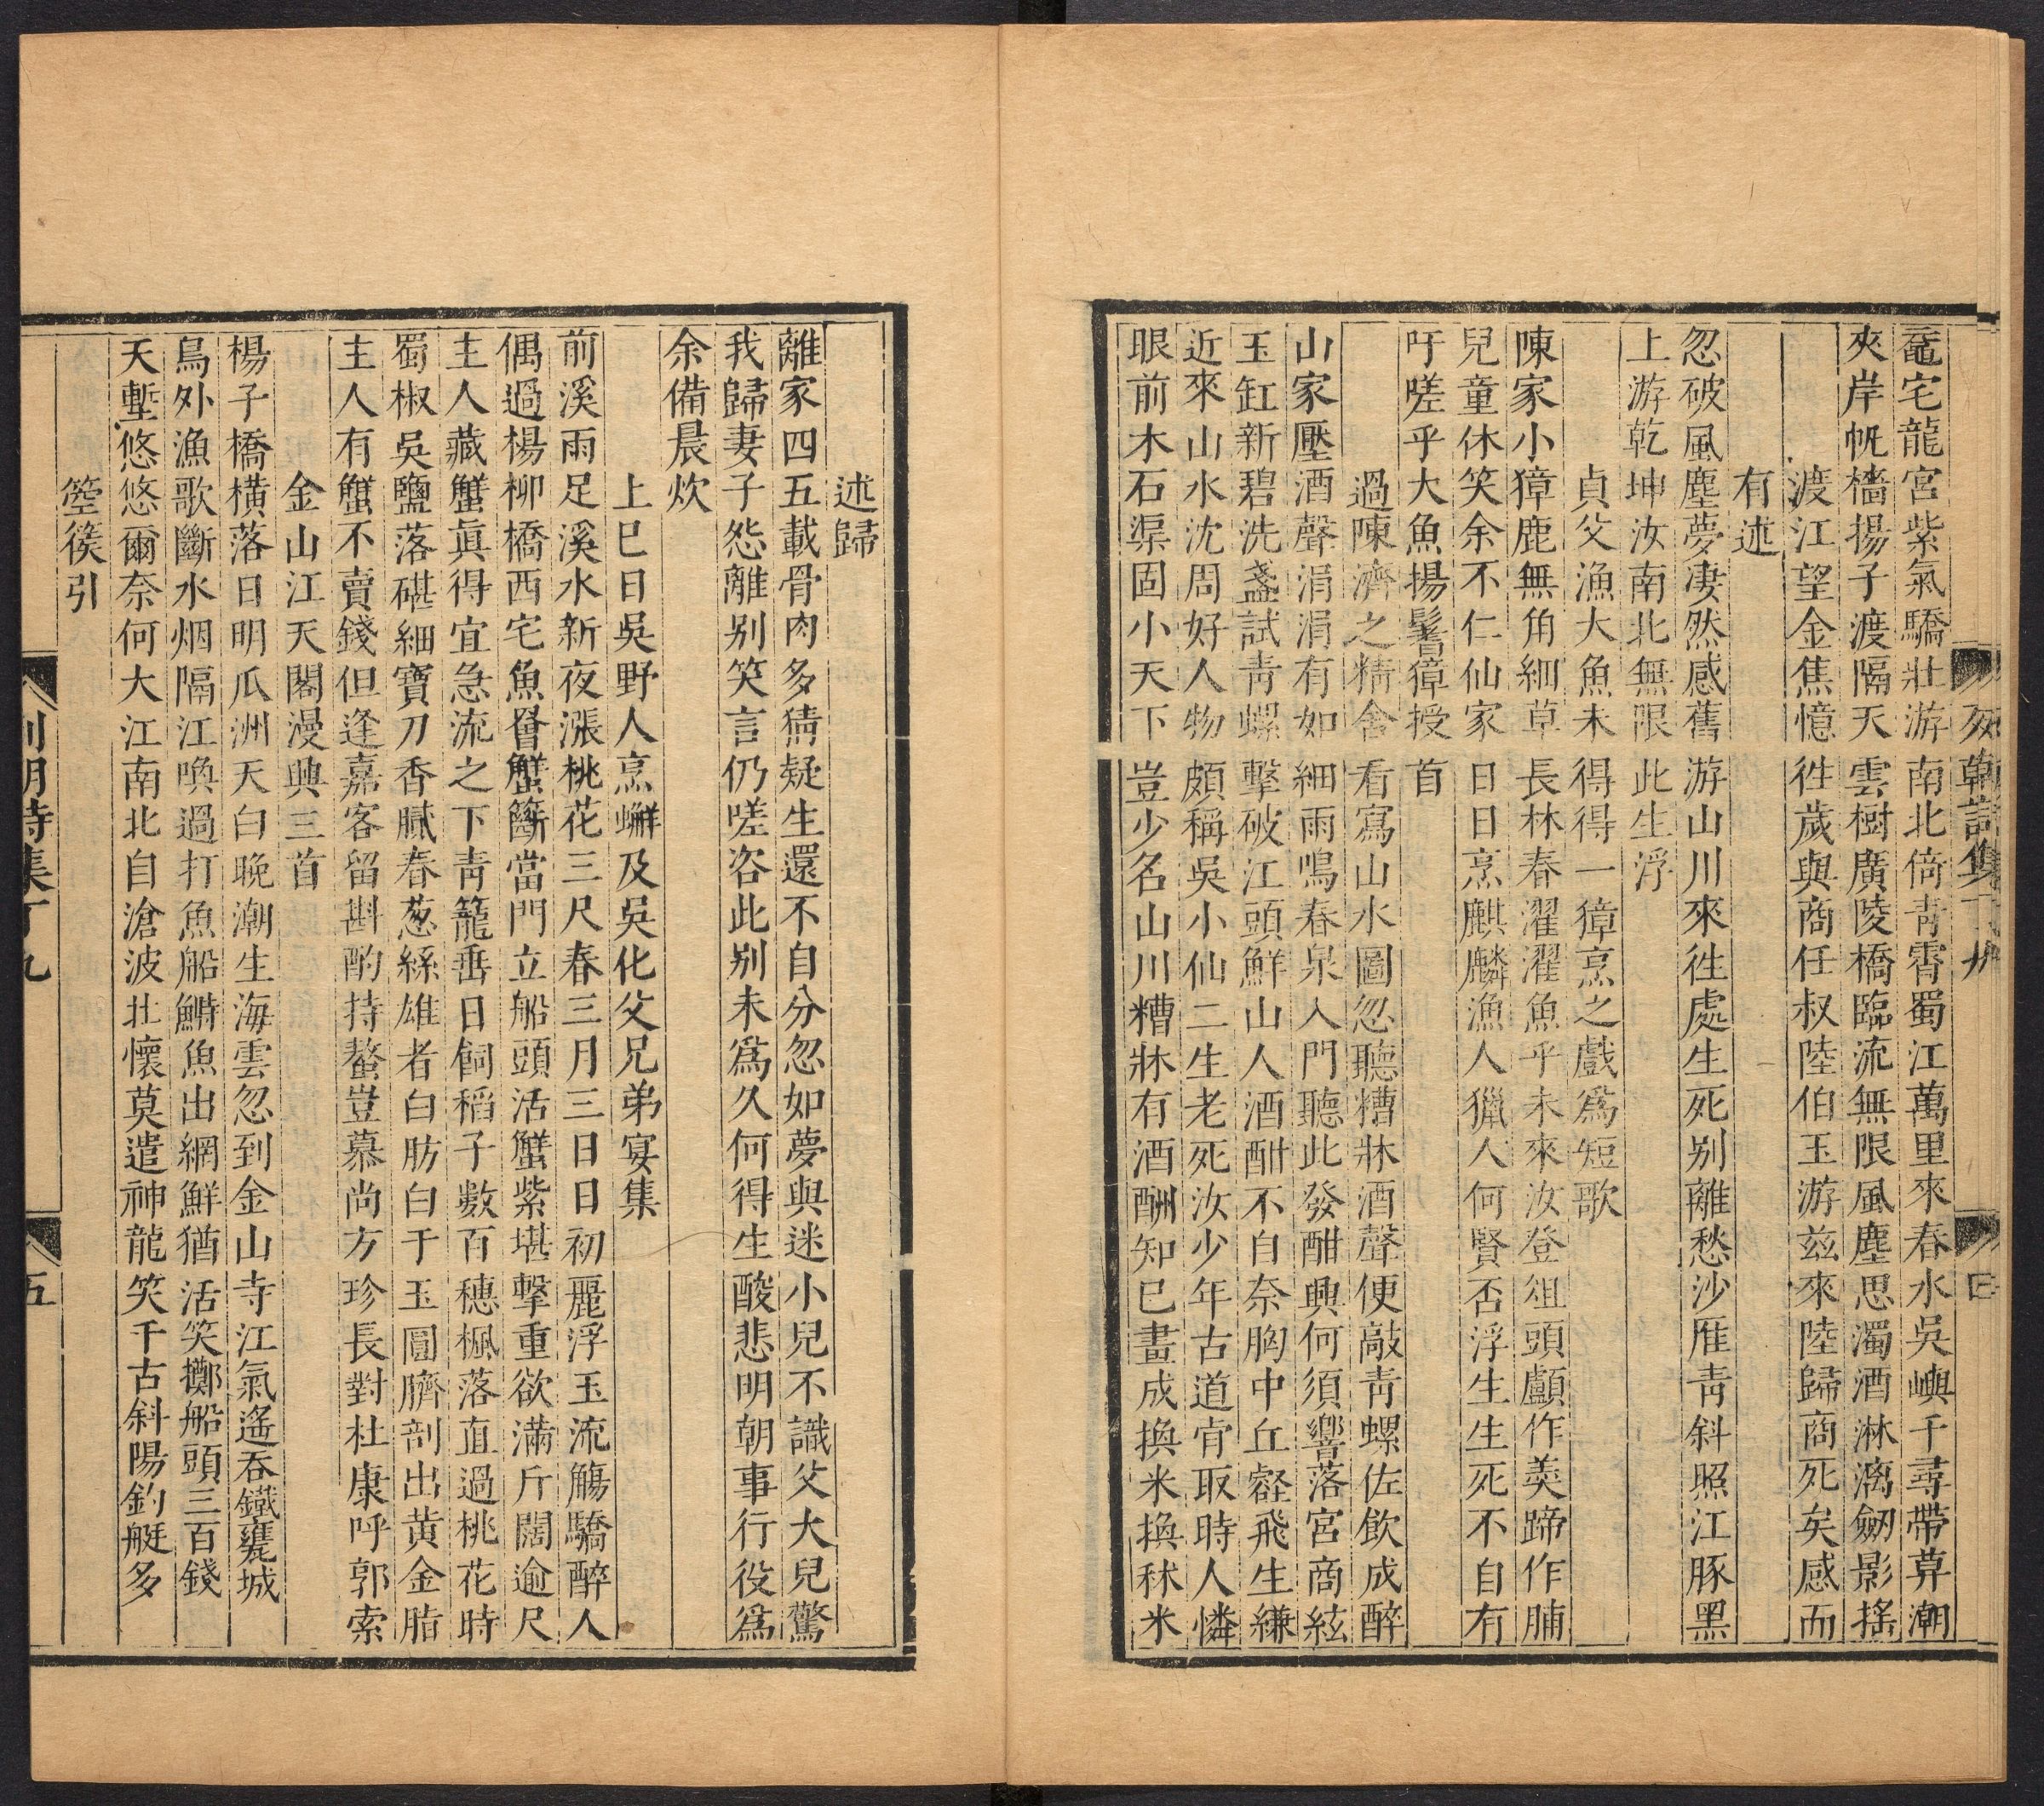 黿宅龍宮紫氣驕壯游南北倚青霄蜀江萬里來春水吳嶼千尋帶草潮
夾岸帆檣揚子渡隔天雲樹廣陵橋臨流無限風塵思濁酒淋漓劒影搖
渡江望金焦憶徃歲與商任叔陸伯玉游玆來陸歸商死矣感而
有述
忽破風塵夢凄然感舊游山川來徃處生死别離愁沙鴈青斜照江豚黑
上游乾坤汝南北無限此生浮
貞父漁大魚未得得一獐烹之戲爲短歌
陳家小獐鹿無角細草長林春濯濯魚乎未來汝登俎頭顱作羮蹄作脯
兒童休笑余不仁仙家日日烹麒麟漁人獵人何賢否浮生生死不自有
吁嗟乎大魚揚鬐獐授首
過陳濟之精舍看寫山水圖忽聽糟牀酒聲便敲青螺佐飲成醉
山家壓酒聲涓涓有如細雨鳴春泉入門聽此發酣興何須響落宮商絃
玉缸新碧洗盞試青螺擊破江頭鮮山人酒酣不自奈胸中丘壑飛生縑
近來山水沈周好人物頗稱吳小仙二生老死汝少年古道肯取時人憐
眼前木石渠固小天下豈少名山川糟牀有酒酬知已畫成換米換秫米
述歸
離家四五載骨肉多猜疑生還不自分忽如夢與迷小兒不識父大兒驚
我歸妻子怨離别笑言仍嗟咨此别未爲久何得生酸悲明朝事行役爲
余備晨炊
上巳日吳野人烹蠏及吳化父兄弟宴集
前溪雨足溪水新夜漲桃花三尺春三月三日日初麗浮玉流觴驕醉人
偶過楊柳橋西宅魚罾蟹籪當門立船頭活蟹紫堪擊重欲滿斤闊逾尺
主人藏蟹眞得宜急流之下靑籠垂日飼稻子數百穗楓落直過桃花時
蜀椒吳鹽落碪細寶刀香膩春葱絲雄者白肪白于玉圓臍剖出黄金脂
主人有蟹不賣錢但逢嘉客留斟酌持螯豈慕尚方珍長對杜康呼郭索
金山江天閣漫興三首
楊子橋橫落日明瓜洲天白晚潮生海雲忽到金山寺江氣遙吞鐵甕城
鳥外漁歌斷水烟隔江喚過打魚船鰣魚出網鮮猶活笑擲船頭三百錢
天塹悠悠爾奈何大江南北自滄波壯懷莫遣神龍笑千古斜陽釣艇多
箜篌引
列朝詩集丁九
五